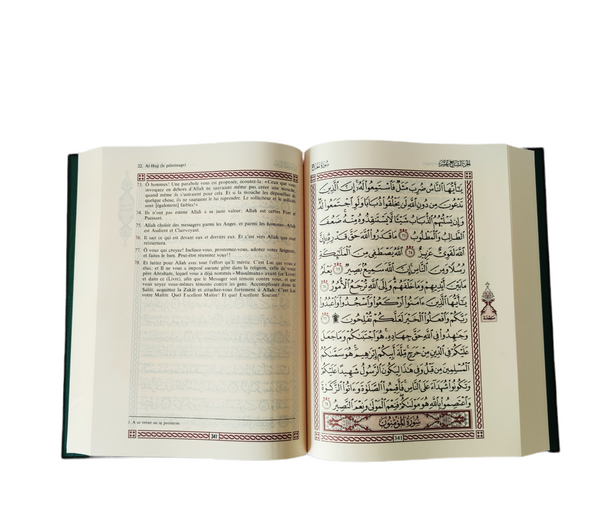 22. Al-Hajj (le pèlerinage)
73. Ô hommes! Une parabole vous est proposée, écoutez-la: «Ceux que vous
invoquez en dehors d'Allah ne sauraient même pas créer une mouche,
quand même ils s'uniraient pour cela. Et si la mouche les dépouillait de
quelque chose, ils ne sauraient le lui reprendre. Le solliciteur et le sollicité
sont [également] faibles!»
74. Ils n'ont pas estimé Allah à sa juste valeur; Allah est certes Fort et
Puissant.
75. Allah choisit des messagers parmi les Anges, et parmi les hommes. Allah
est Audient et Clairvoyant.
76. Il sait ce qui est devant eux et derrière eux. Et c'est vers Allah que tout
retournera.
77. Ô vous qui croyez! Inclinez-vous, prosternez-vous, adorez votre Seigneur,
et faites le bien. Peut-être réussirez vous!
78. Et luttez pour Allah avec tout l'effort qu'Il mérite. C'est Lui qui vous a
élus; et Il ne vous a imposé aucune gêne dans la religion, celle de votre
père Abraham, lequel vous a déjà nommés «Musulmans» avant (ce Livre)
et dans ce (Livre), afin que le Messager soit témoin contre vous, et que
vous soyez vous-mêmes témoins contre les gens. Accomplissez donc la
Salât, acquittez la Zakât et attachez-vous fortement à Allah. C'est Lui
votre Maître. Quel Excellent Maître! Et quel Excellent Soutien!
341
يَٰٓأَيُّهَا ٱلنَّاسُ ضُرِبَ مَثَلٌ فَٱسْتَمِعُوا۟ لَهُۥٓ إِنَّ ٱلَّذِينَ
تَدْعُونَ مِن دُونِ ٱللَّهِ لَن يَخْلُقُوا۟ ذُبَابًا وَلَوِ ٱجْتَمَعُوا۟ لَهُۥ
وَإِن يَسْلُبْهُمُ ٱلذُّبَابُ شَيْـًٔا لَّا يَسْتَنقِذُوهُ مِنْهُ ضَعُفَ
ٱلطَّالِبُ وَٱلْمَطْلُوبُ ٧٣ مَا قَدَرُوا۟ ٱللَّهَ حَقَّ قَدْرِهِۦٓ إِنَّ
ٱللَّهَ لَقَوِىٌّ عَزِيزٌ ٧٤ ٱللَّهُ يَصْطَفِى مِنَ ٱلْمَلَٰٓئِكَةِ
رُسُلًا وَمِنَ ٱلنَّاسِ إِنَّ ٱللَّهَ سَمِيعٌۢ بَصِيرٌ ٧٥ يَعْلَمُ
مَا بَيْنَ أَيْدِيهِمْ وَمَا خَلْفَهُمْ وَإِلَى ٱللَّهِ تُرْجَعُ ٱلْأُمُورُ ٧٦
يَٰٓأَيُّهَا ٱلَّذِينَ ءَامَنُوا۟ ٱرْكَعُوا۟ وَٱسْجُدُوا۟ وَٱعْبُدُوا۟
رَبَّكُمْ وَٱفْعَلُوا۟ ٱلْخَيْرَ لَعَلَّكُمْ تُفْلِحُونَ ۩ ٧٧
وَجَٰهِدُوا۟ فِى ٱللَّهِ حَقَّ جِهَادِهِۦ هُوَ ٱجْتَبَىٰكُمْ وَمَا جَعَلَ
عَلَيْكُمْ فِى ٱلدِّينِ مِنْ حَرَجٍ مِّلَّةَ أَبِيكُمْ إِبْرَٰهِيمَ هُوَ سَمَّىٰكُمُ
ٱلْمُسْلِمِينَ مِن قَبْلُ وَفِى هَٰذَا لِيَكُونَ ٱلرَّسُولُ شَهِيدًا عَلَيْكُمْ
وَتَكُونُوا۟ شُهَدَآءَ عَلَى ٱلنَّاسِ فَأَقِيمُوا۟ ٱلصَّلَوٰةَ وَءَاتُوا۟ ٱلزَّكَوٰةَ
وَٱعْتَصِمُوا۟ بِٱللَّهِ هُوَ مَوْلَىٰكُمْ فَنِعْمَ ٱلْمَوْلَىٰ وَنِعْمَ ٱلنَّصِيرُ ٧٨
سُورَةُ المُؤْمِنُونَ
341